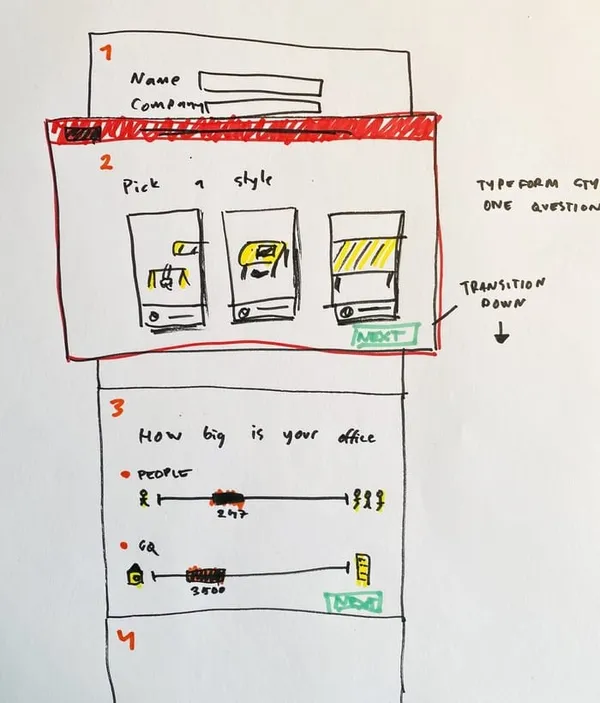 1
Name
Company
2
Pick a style
TYPEFORM STY
ONE QUESTION
NEXT
TRANSITION
DOWN
3
How big is your office
PEOPLE
247
SQ
3500
NEXT
4